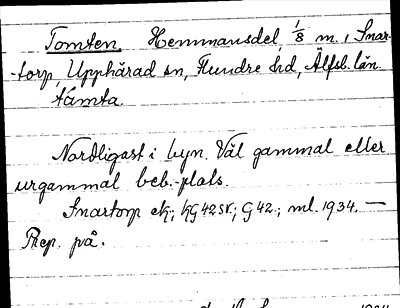 Tomten, Hemmansdel, 1/8 m. i Snar-
-torp, Upphärad sn, Flundre hd, Älfsb. län.
tåmta.
Nordligast i byn. Väl gammal eller
urgammal beb.-plats.
Snartorp ek; KG42SV.; G42.; ml. 1934. —
Prep. på.